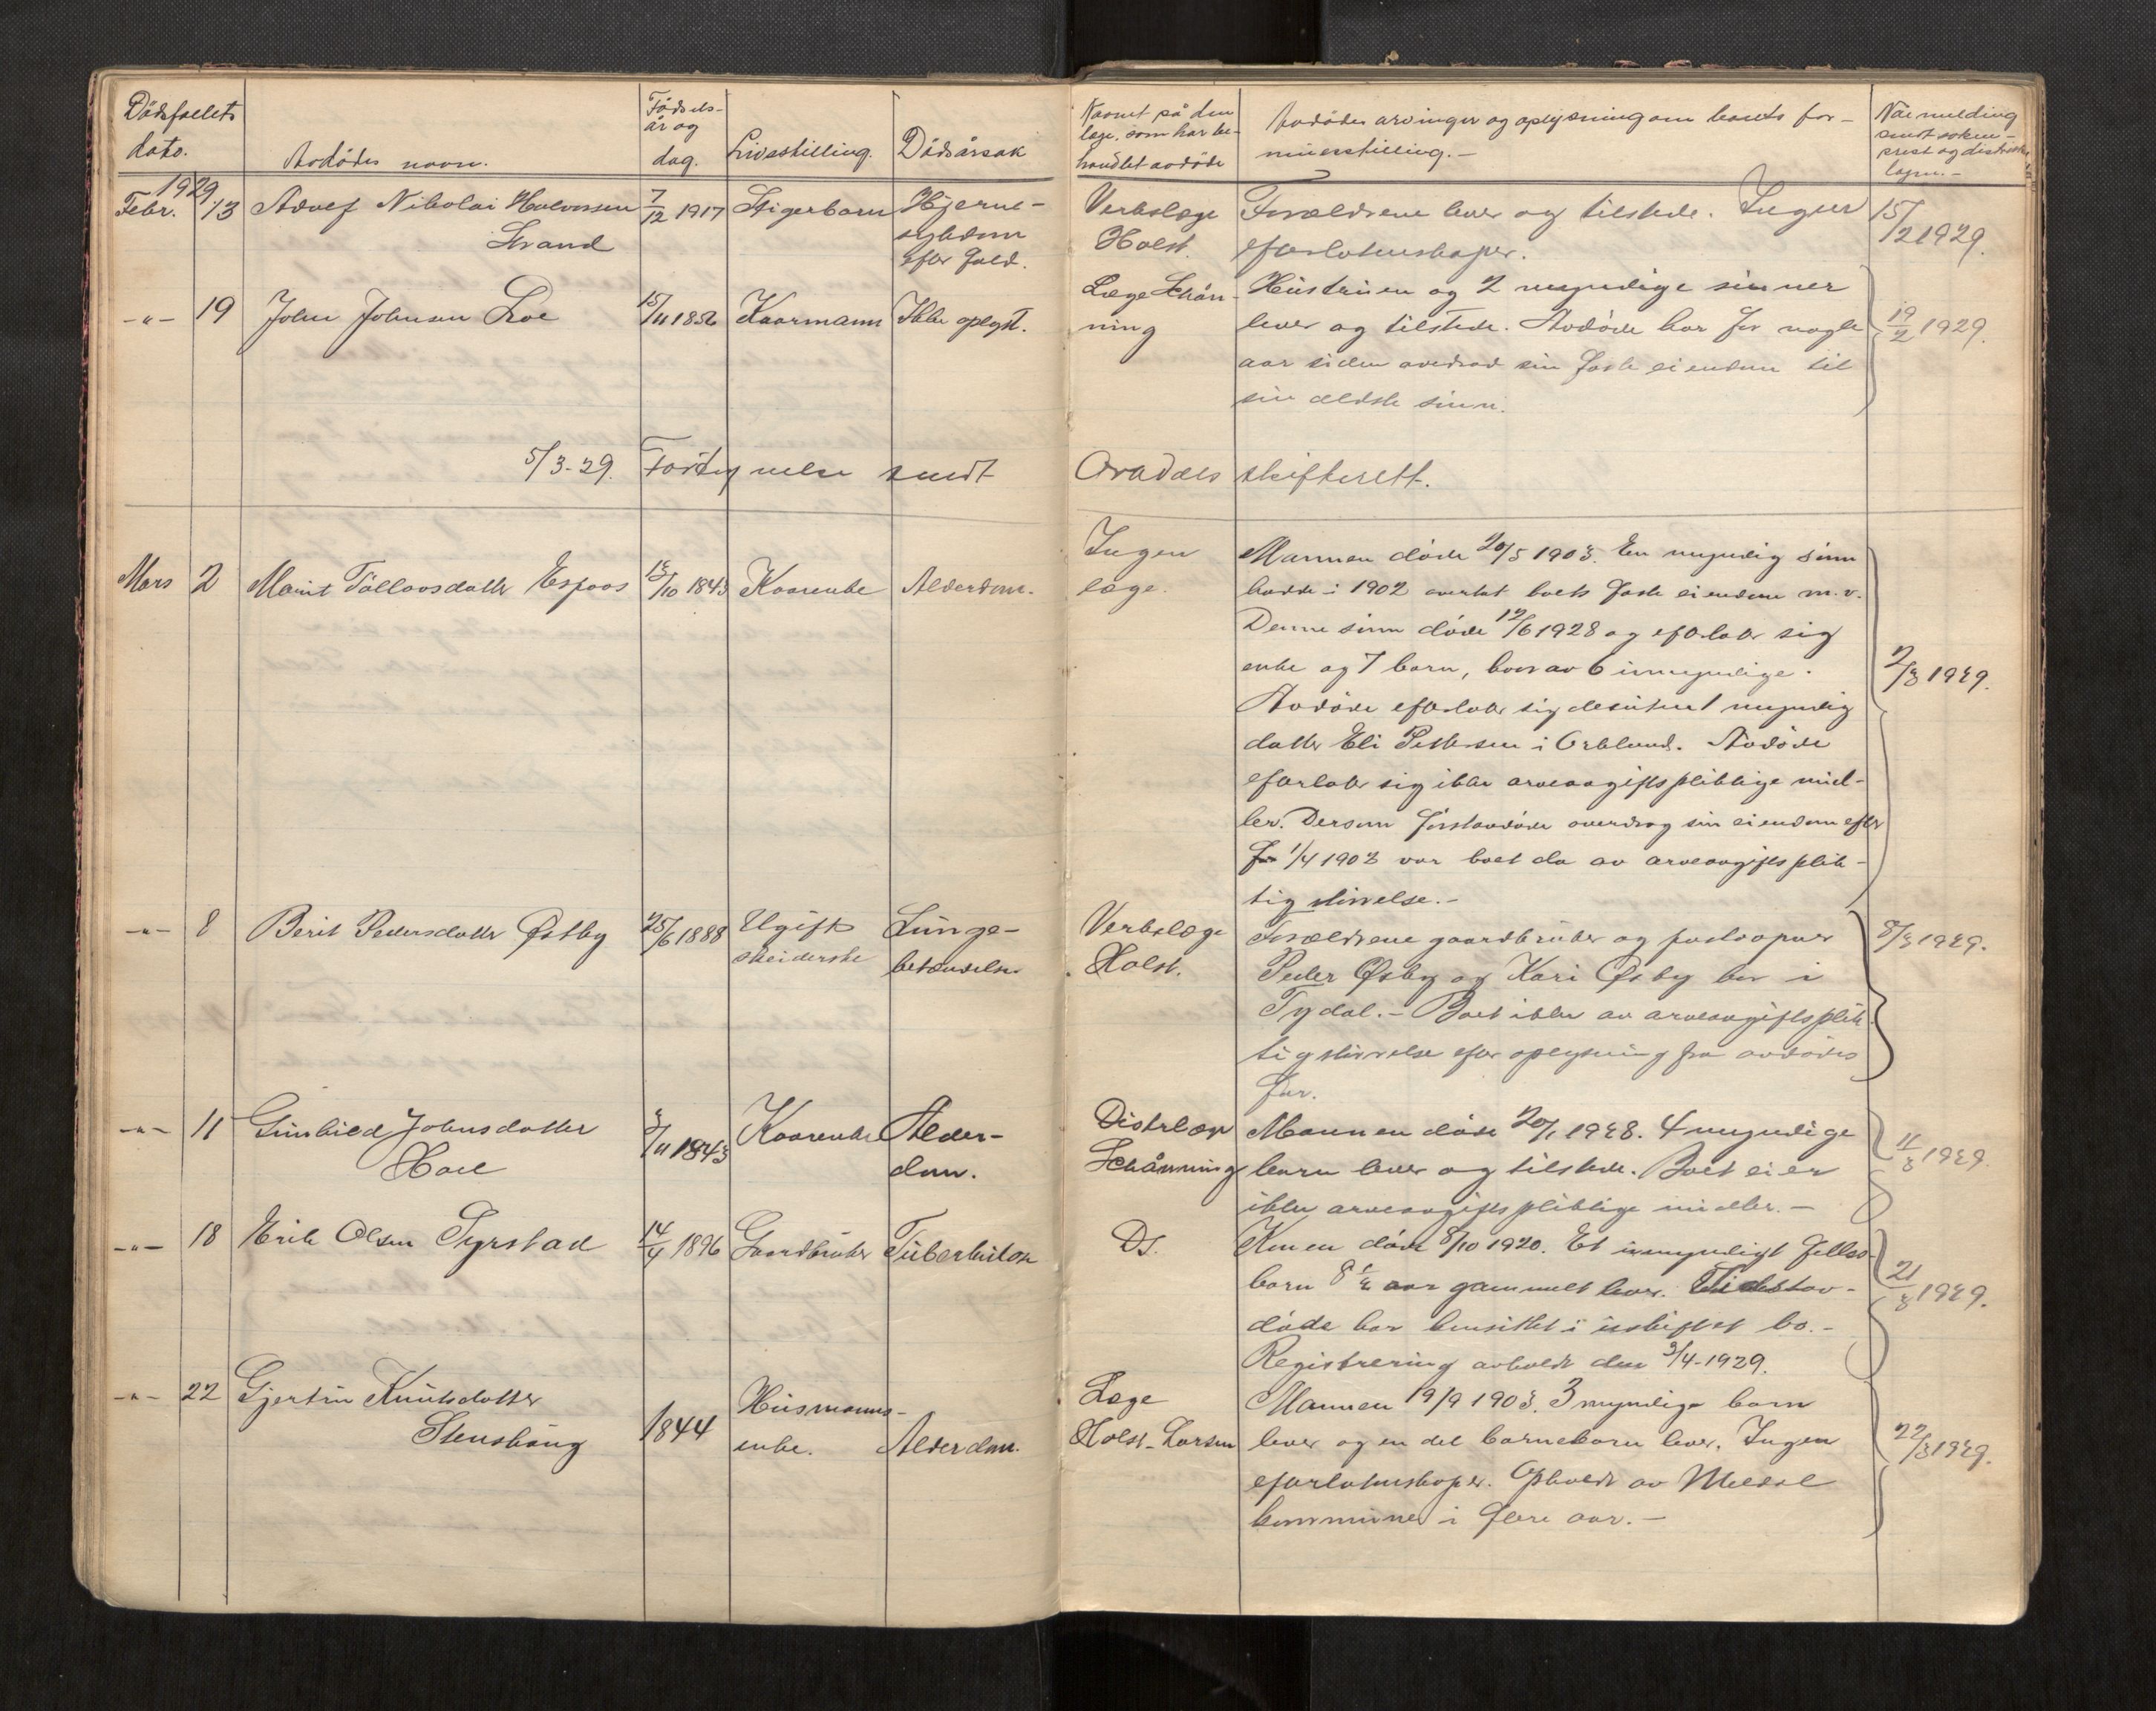 Dödsfaldets
dato.
Avdödes navn.
Fødsels-
år og
dag.
Livsstilling.
Dødsårsak
Navnet på den
læge, som har be-
handlet avdøde
Avdødes arvinger og oplysning om boets for-
muesstilling.-
Når melding
sendt sokne-
prest og distrikts-
lægen.-
1929
Febr. 13 Adolf Nikolai Halvorsen 7/12 1917 Stigerbarn Hjerne-
Strand
sygdom
efter fald.
Verkslæge
Holst.
Forældrene lever og tilstede. Ingen
efterlatenskaper.
15/2 1929.
-"- 19 John Johnsen Loe 15/11 1856 Kaarmann Ikke oplyst.
Læge Schøn-
ning
Hustruen og 2 myndige sønner
lever og tilstede. Avdøde har for nogle
aar siden overdrad sin faste eiendom til
sin ældste sønn.
19/2 1929.
5/3-29. Fortegnelse sendt Orkdals skifterett.
Mars 2 Marit Tollovsdatter Espaas 13/10 1843 Kaarenke Alderdom.
Ingen
læge.
Mannen døde 20/5 1903. En myndig sønn
hadde i 1902 overtat boets faste eiendom m.v.
Denne sønn døde 12/6 1928 og efterlater sig
enke og 7 barn, hvorav 6 umyndige.
Avdøde efterlater sig desuten 1 myndig
datter Eli Pettersen i Orkland. Avdøde
efterlater sig ikke arveavgiftspliktige mid-
ler. Dersom førstavdøde overdrog sin eiendom efter
1/4 1903 var boet da av arveavgiftsplik-
tig størrelse.-
2/3 1929.
-"- 8 Berit Pedersdatter Østby 25/6 1888 Ugift
skeiderske
Lunge-
betændelse.
Verkslæge
Holst.
Forældrene gaardbruker og postaapner
Peder Østby og Kari Østby bor i
Tydal.- Boet ikke av arveavgiftsplik
tig størrelse efter oplysning fra avdødes
far.
8/3 1929.
-"- 11 Gunhild Johnsdatter
Hoel
3/11 1843 Kaarenke Alder-
dom.
Distr.læge
Schønning
Mannen døde 20/1 1928. 4 myndige
barn lever og tilstede. Boet eier
ikke arveavgiftspliktige midler.-
11/3 1929.
-"- 18 Erik Olsen Syrstad 14/4 1896 Gaardbruker Tuberkulose
Ds.
Konen døde 8/10 1920. Et umyndigt felles-
barn 8 1/2 aar gammelt lever. Sidstav-
døde har hensittet i uskiftet bo.-
Registrering avholdt den 3/4-1929.
21/3 1929.
-"- 22 Gjertru Knutsdatter
Stenshaug
1844
Husmanns-
enke.
Alderdom.
Læge
Holst-Larsen
Mannen 19/9 1903. 3 myndige barn
lever og en del barnebarn lever. Ingen
efterlatenskaper. Opholdt av Meldal
kommune i flere aar.-
22/3 1929.